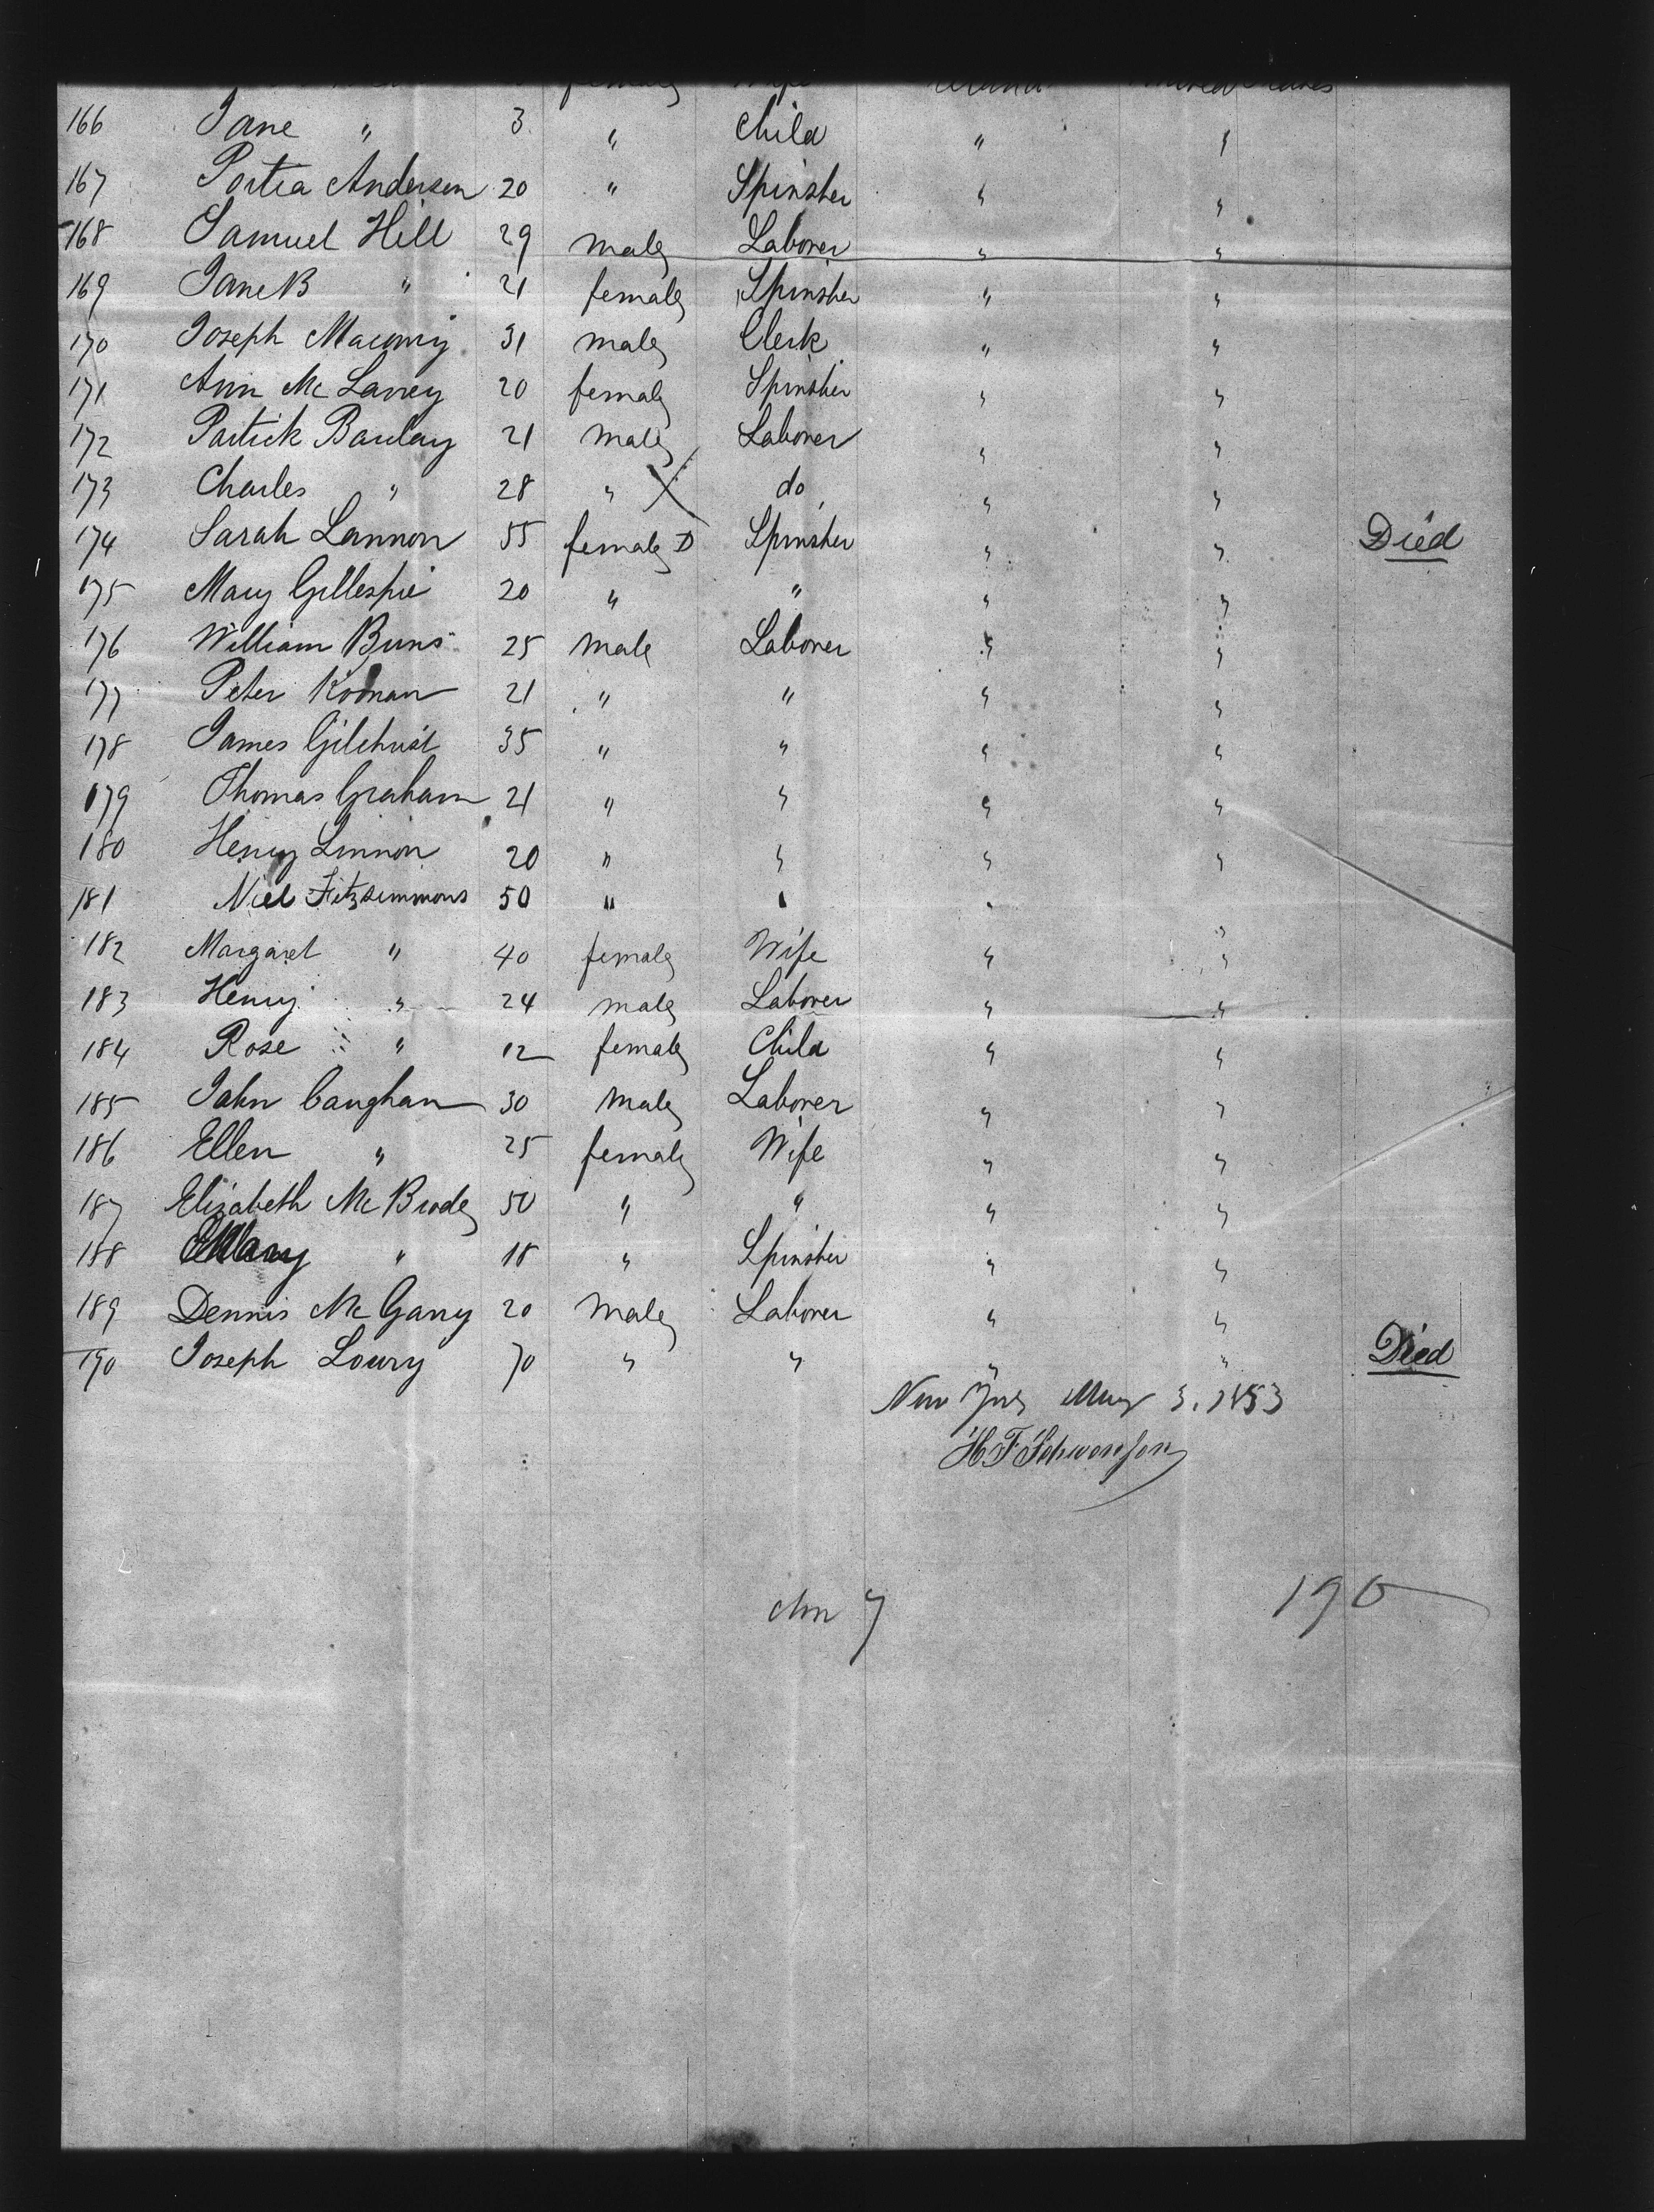 female Wife
166 Jane " 3 " Child " "
167 Portia Andersen 20 " Spinster " "
168 Samuel Hill 29 male Laborer " "
169 Jane B " 21 female Spinster " "
170 Joseph 31 male Clerk " "
171 Ann Mc Laney 20 female Spinster " "
172 Patrick Barclay 21 male Laborer " "
173 Charles " 28 " X do " "
174 Sarah Lannon 55 female D Spinster " " Died
175 Mary Gillespie 20 " " " "
176 William Buns 25 male Laborer " "
177 Peter 21 " " " "
178 James Gilchrist 35 " " " "
179 Thomas Graham 21 " " " "
180 Henry Linnon 20 " " " "
181 Niel Fitzsimmons 50 " " "
182 Margaret " 40 female Wife " "
183 Henry " 24 male Laborer " "
184 Rose " 12 female Child " "
185 John Caughan 30 male Laborer " "
186 Ellen " 25 female Wife " "
187 Elizabeth Mc Brode 50 " " " "
188 Mary " 18 " Spinster " "
189 Dennis Mc Garry 20 male Laborer " "
190 Joseph Lowry 70 " " " " Died
New York May 3. 1853
H. F.
190